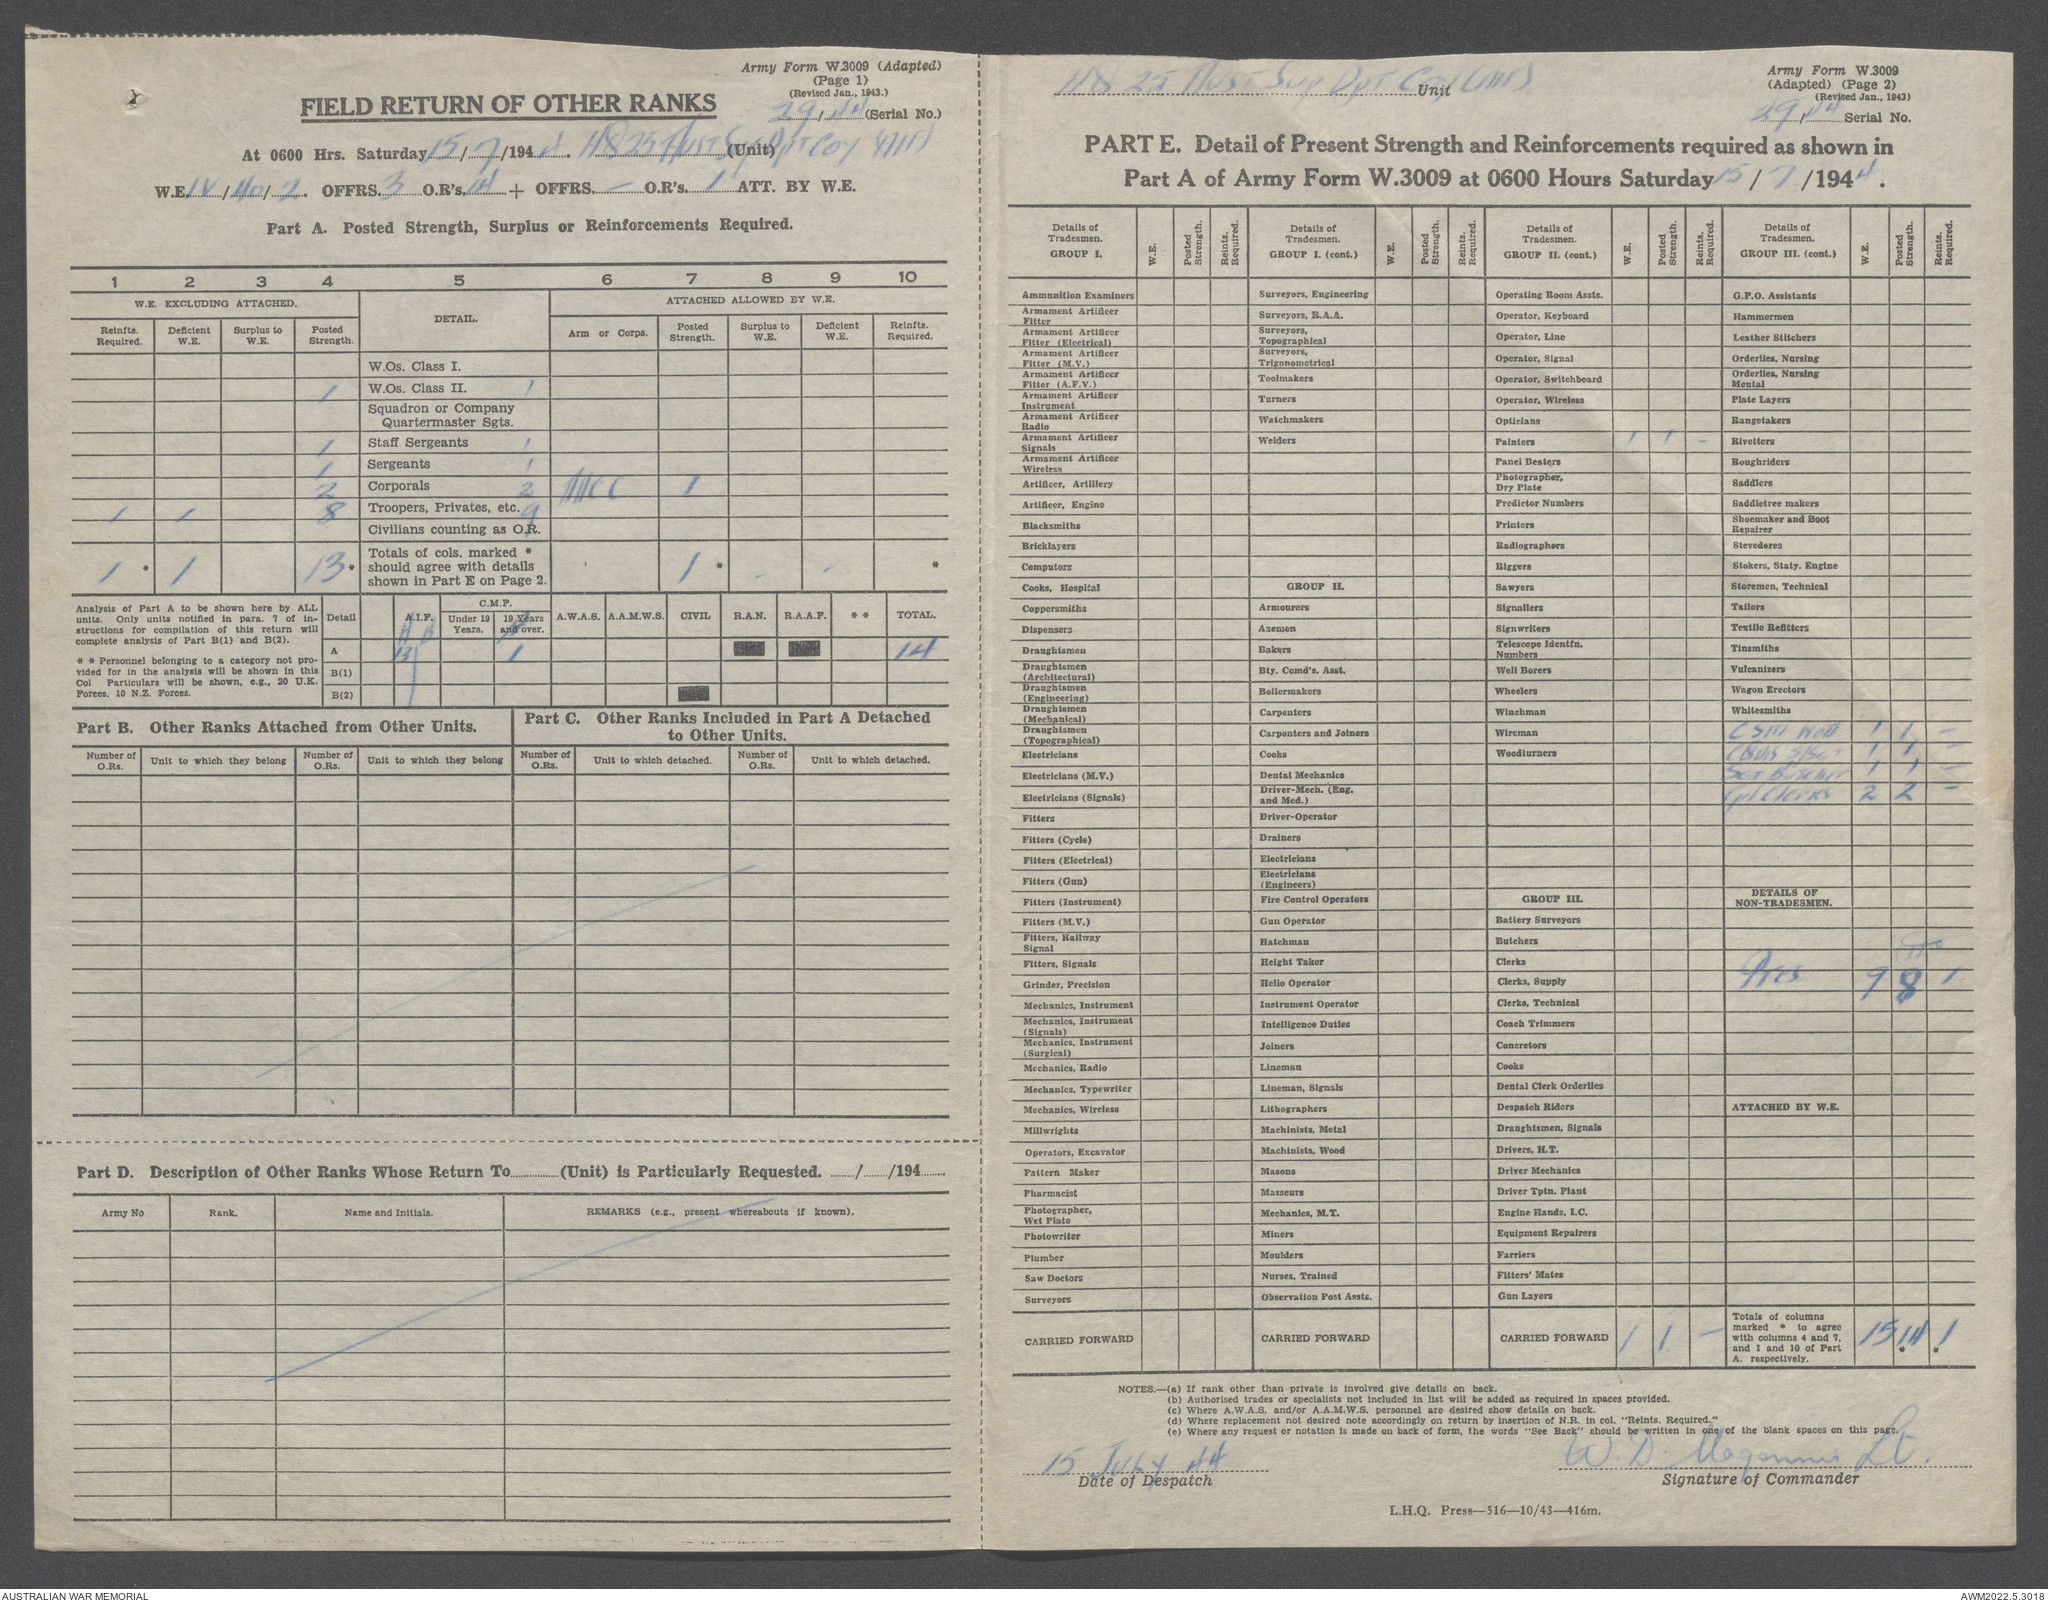 Army Form W.3009 (Adapted)
(Page 1)
(Revised Jan., 1943.)
FIELD RETURN OF OTHER RANKS
29/44 (Serial No.)
At 0600 Hrs. Saturday 15/7/1944. HQ 25 Aust Sup Dpt Coy (AIF) (Unit)
W.E. IV/40/2. OFFRS. 3 O.R's. 14 + OFFRS. – O.R's. 1 ATT. BY W.E.
Part A. Posted Strength, Surplus or Reinforcements Required.
1 2 3 4 5 6 7 8 9 10
W.E. EXCLUDING ATTACHED. DETAIL. ATTACHED ALLOWED BY W.E.
Reinfts. Required. Deficient W.E. Surplus to W.E. Posted Strength. Arm or Corps. Posted Strength. Surplus to W.E. Deficient W.E. Reinfts. Required.
W.Os. Class I.
1 W.Os. Class II. 1
Squadron or Company Quartermaster Sgts.
1 Staff Sergeants 1
1 Sergeants 1
2 Corporals 2 AACC 1
1 1 8 Troopers, Privates, etc. 9
Civilians counting as O.R.
1 * 1 13 * Totals of cols. marked * should agree with details shown in Part E on Page 2. 1 * - - *
Analysis of Part A to be shown here by ALL units. Only units notified in para. 7 of instructions for compilation of this return will complete analysis of Part B(1) and B(2).
* * Personnel belonging to a category not provided for in the analysis will be shown in this Col Particulars will be shown, e.g., 20 U.K. Forces, 10 N.Z. Forces.
Detail A.I.F. C.M.F. Under 19 Years. 19 Years and over. A.W.A.S. A.A.M.W.S. CIVIL R.A.N. R.A.A.F. * * TOTAL.
A 13 1 14
B(1)
B(2)
Part B. Other Ranks Attached from Other Units.
Part C. Other Ranks Included in Part A Detached to Other Units.
Number of O.Rs. Unit to which they belong Number of O.Rs. Unit to which they belong Number of O.Rs. Unit to which detached. Number of O.Rs. Unit to which detached.
Part D. Description of Other Ranks Whose Return To (Unit) is Particularly Requested. / /194
Army No Rank. Name and Initials. REMARKS (e.g., present whereabouts if known).
HQ 25 Aust Sup Dpt Coy (AIF) Unit
Army Form W.3009
(Adapted) (Page 2)
(Revised Jan., 1943)
29/44 Serial No.
PART E. Detail of Present Strength and Reinforcements required as shown in
Part A of Army Form W.3009 at 0600 Hours Saturday 15/7/1944.
Details of Tradesmen. GROUP I. W.E. Posted Strength. Reints. Required.
Ammunition Examiners
Armament Artificer Fitter
Armament Artificer Fitter (Electrical)
Armament Artificer Fitter (M.V.)
Armament Artificer Fitter (A.F.V.)
Armament Artificer Instrument
Armament Artificer Radio
Armament Artificer Signals
Armament Artificer Wireless
Artificer, Artillery
Artificer, Engine
Blacksmiths
Bricklayers
Computors
Cooks, Hospital
Coppersmiths
Dispensers
Draughtsmen
Draughtsmen (Architectural)
Draughtsmen (Engineering)
Draughtsmen (Mechanical)
Draughtsmen (Topographical)
Electricians
Electricians (M.V.)
Electricians (Signals)
Fitters
Fitters (Cycle)
Fitters (Electrical)
Fitters (Gun)
Fitters (Instrument)
Fitters (M.V.)
Fitters, Railway Signal
Fitters, Signals
Grinder, Precision
Mechanics, Instrument
Mechanics, Instrument (Signals)
Mechanics, Instrument (Surgical)
Mechanics, Radio
Mechanics, Typewriter
Mechanics, Wireless
Millwrights
Operators, Excavator
Pattern Maker
Pharmacist
Photographer, Wet Plate
Photowriter
Plumber
Saw Doctors
Surveyors
CARRIED FORWARD
Details of Tradesmen. GROUP I. (cont.) W.E. Posted Strength. Reints. Required.
Surveyors, Engineering
Surveyors, R.A.A.
Surveyors, Topographical
Surveyors, Trigonometrical
Toolmakers
Turners
Watchmakers
Welders
GROUP II.
Armourers
Axemen
Bakers
Bty. Comd's. Asst.
Boilermakers
Carpenters
Carpenters and Joiners
Cooks
Dental Mechanics
Driver-Mech. (Eng. and Med.)
Driver-Operator
Drainers
Electricians
Electricians (Engineers)
Fire Control Operators
Gun Operator
Hatchman
Height Taker
Helio Operator
Instrument Operator
Intelligence Duties
Joiners
Lineman
Lineman, Signals
Lithographers
Machinists, Metal
Machinists, Wood
Masons
Masseurs
Mechanics, M.T.
Miners
Moulders
Nurses, Trained
Observation Post Assts.
CARRIED FORWARD
Details of Tradesmen. GROUP II. (cont.) W.E. Posted Strength. Reints. Required.
Operating Room Assts.
Operator, Keyboard
Operator, Line
Operator, Signal
Operator, Switchboard
Operator, Wireless
Opticians
Painters 1 1 –
Panel Beaters
Photographer, Dry Plate
Predictor Numbers
Printers
Radiographers
Riggers
Sawyers
Signallers
Signwriters
Telescope Identfn. Numbers
Well Borers
Wheelers
Winchman
Wireman
Woodturners
GROUP III.
Battery Surveyors
Butchers
Clerks
Clerks, Supply
Clerks, Technical
Coach Trimmers
Concretors
Cooks
Dental Clerk Orderlies
Despatch Riders
Draughtsmen, Signals
Drivers, H.T.
Driver Mechanics
Driver Tptn. Plant
Engine Hands, I.C.
Equipment Repairers
Farriers
Fitters' Mates
Gun Layers
CARRIED FORWARD 1 1 –
Details of Tradesmen. GROUP III. (cont.) W.E. Posted Strength. Reints. Required.
G.P.O. Assistants
Hammermen
Leather Stitchers
Orderlies, Nursing
Orderlies, Nursing Mental
Plate Layers
Rangetakers
Rivetters
Roughriders
Saddlers
Saddletree makers
Shoemaker and Boot Repairer
Stevedores
Stokers, Staty. Engine
Storemen, Technical
Tailors
Textile Refitters
Tinsmiths
Vulcanizers
Wagon Erectors
Whitesmiths
CSM WOII 1 1 –
CQMS S/Sgt 1 1 –
Sgt Butcher 1 1 –
Cpl Clerks 2 2 –
DETAILS OF NON-TRADESMEN.
Ptes 9 8 1
ATTACHED BY W.E.
Totals of columns marked * to agree with columns 4 and 7, and 1 and 10 of Part A. respectively. 15 14 * 1 *
NOTES.—(a) If rank other than private is involved give details on back.
(b) Authorised trades or specialists not included in list will be added as required in spaces provided.
(c) Where A.W.A.S. and/or A.A.M.W.S. personnel are desired show details on back.
(d) Where replacement not desired note accordingly on return by insertion of N.R. in col. "Reints. Required."
(e) Where any request or notation is made on back of form, the words "See Back" should be written in one of the blank spaces on this page.
15 July 44
Date of Despatch
W. D. Magennis Lt.
Signature of Commander
L.H.Q. Press—516—10/43—416m.
AUSTRALIAN WAR MEMORIAL
AWM2022.5.3018